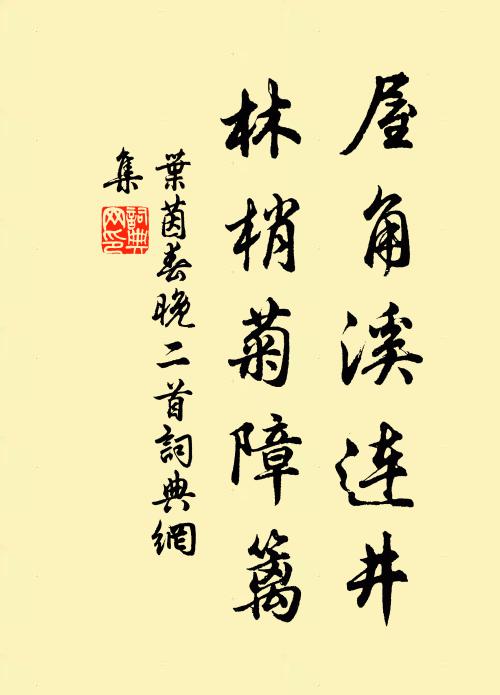 屋角溪連井
林梢菊障籬
葉茵春晚二首詞典網
集
詞典网印